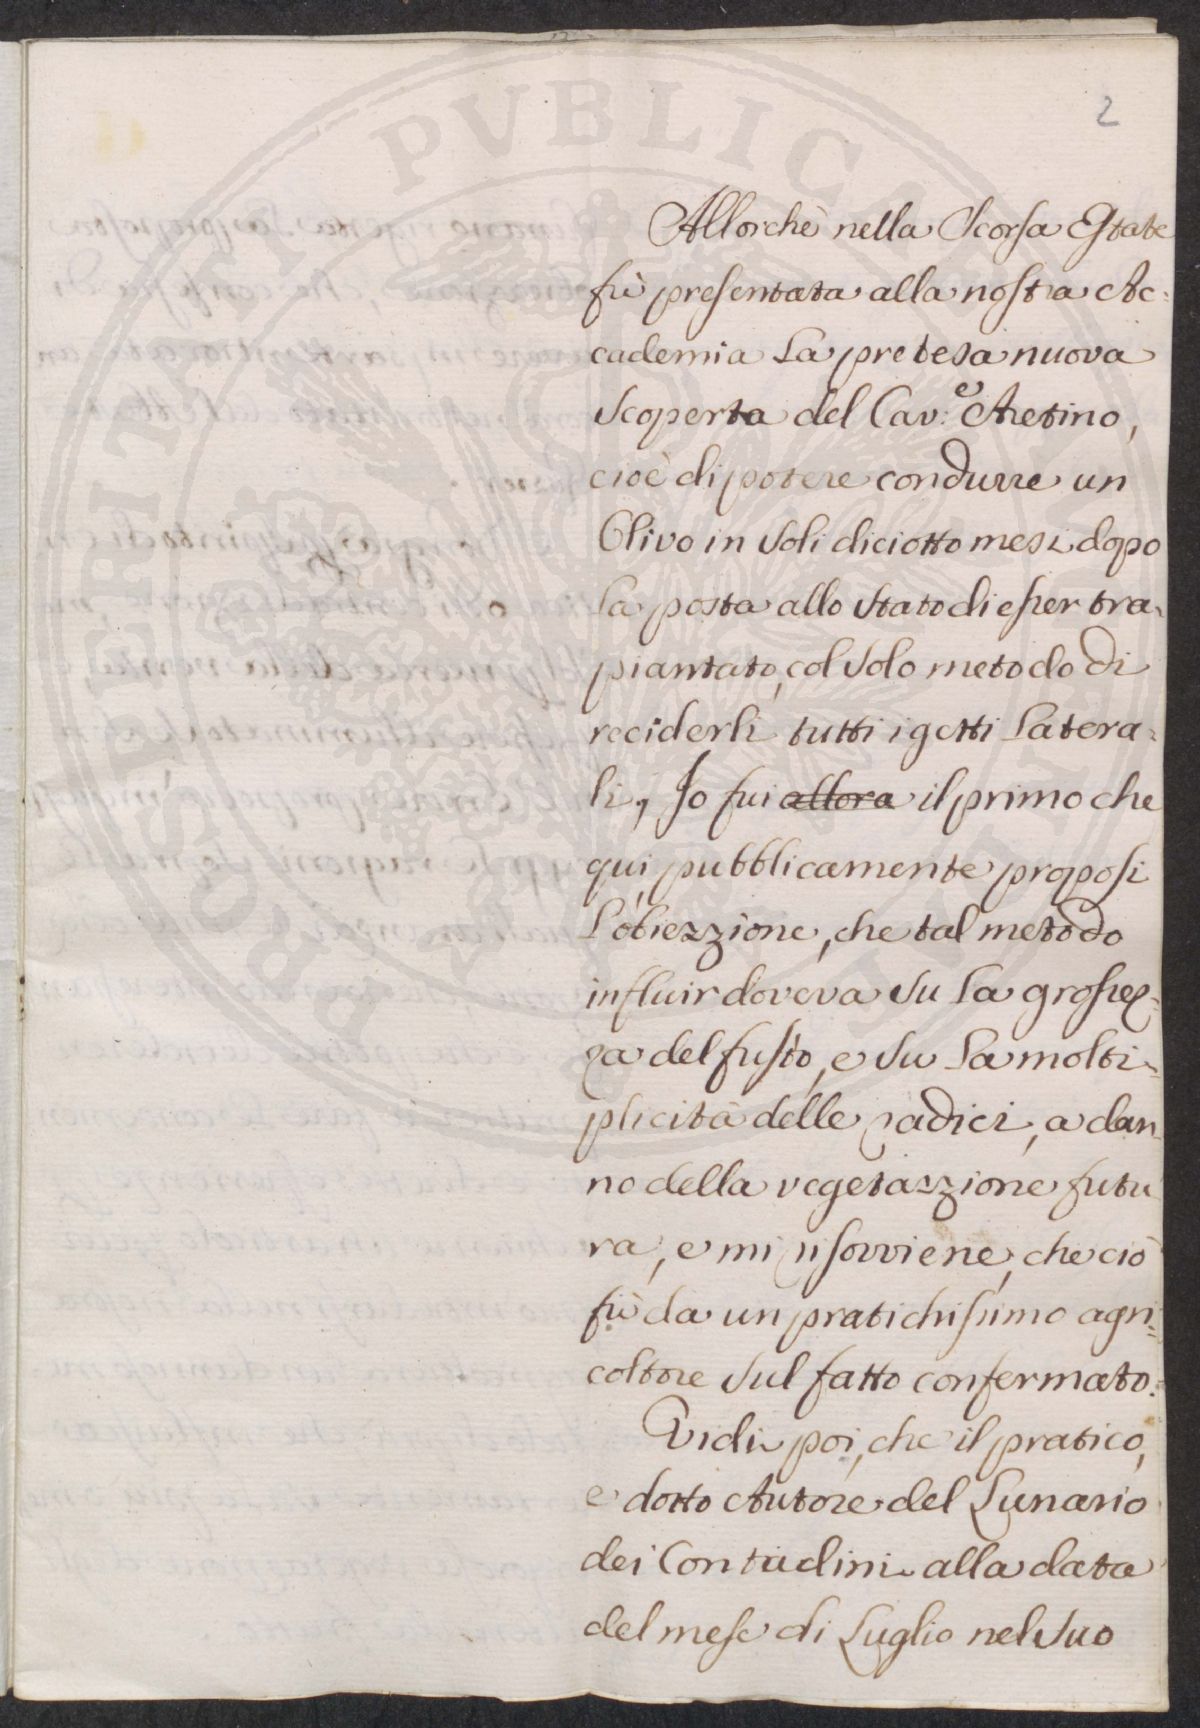 2
Allorchè nella Scorsa Estate
fù presentata alla nostra Ac-
cademia la pretesa nuova
Scoperta del Cav.e Aretino,
cioè di potere condurre un
Olivo in soli diciotto mesi dopo
la posta allo stato di esser tra-
piantato, col solo metodo di
reciderli tutti i getti latera-
li, Io fui allora il primo che
qui pubblicamente proposi
l'obiezzione, che tal metodo
influir doveva su la grossez-
za del fusto, e su la molti-
plicità delle radici, a dan-
no della vegetazzione futu-
ra, e mi risovviene, che ciò
fù da un pratichissimo agri-
coltore sul fatto confermato.
Vidi poi, che il pratico,
e dotto Autore del Lunario
dei Contadini alla data
del mese di Luglio nel suo